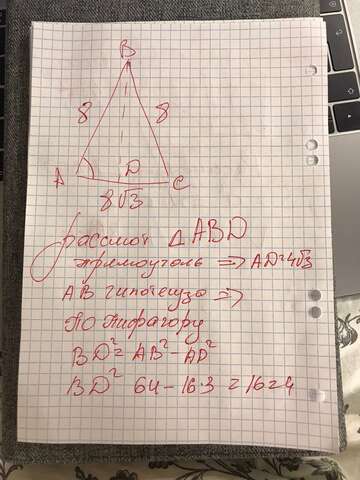 B
8 8
A D C
8√3
рассмот △ ABD
прямоуголь => AD=4√3
AB гипотенуза =>
по Пифагору
BD²= AB²-AD²
BD² 64-16·3=16=4